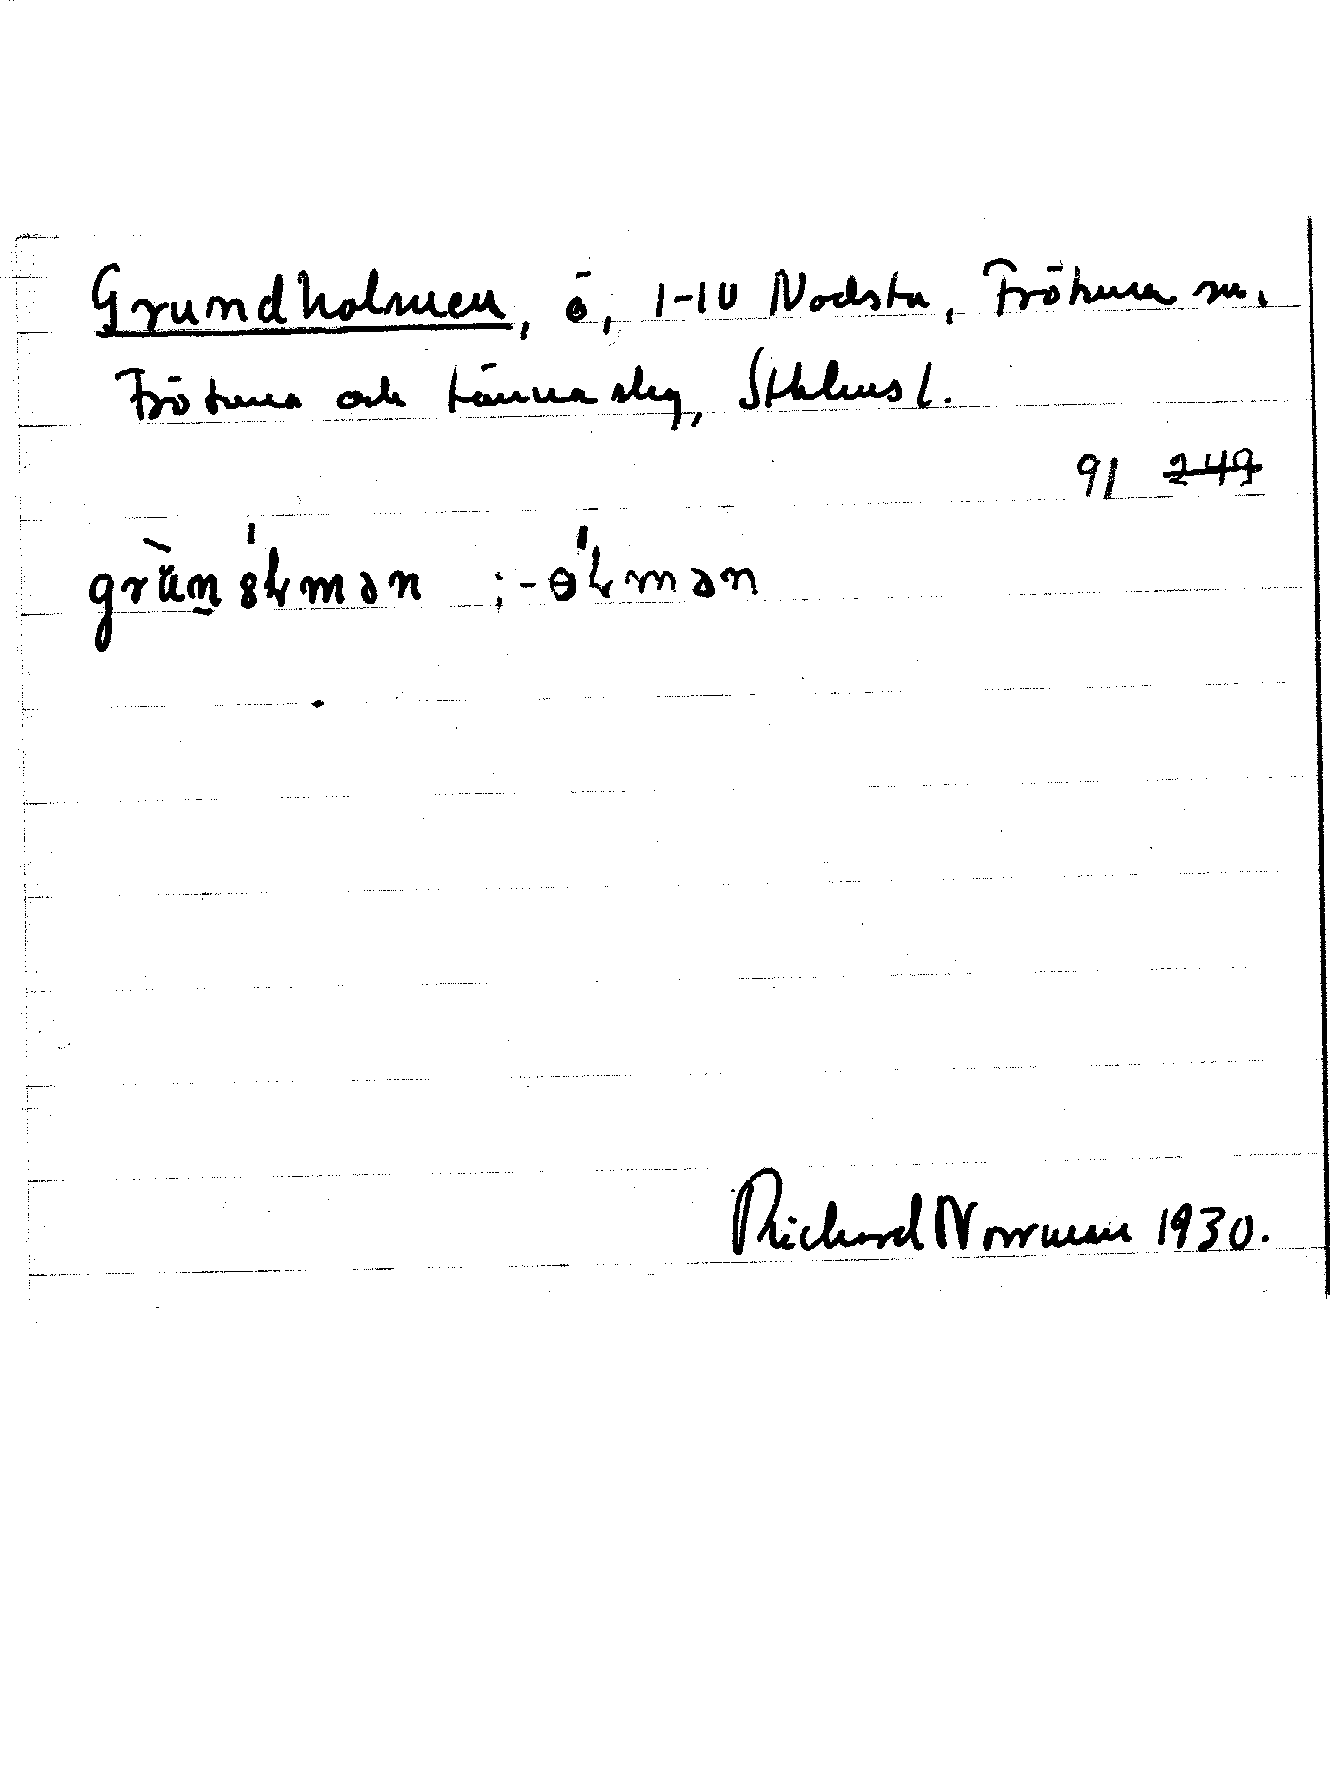 Grundholmen, ö, 1-10 Nodsta, Frötuna sn.
Frötuna och Länna skg, Sthlms l.
91 249
Richard Norrman 1930.